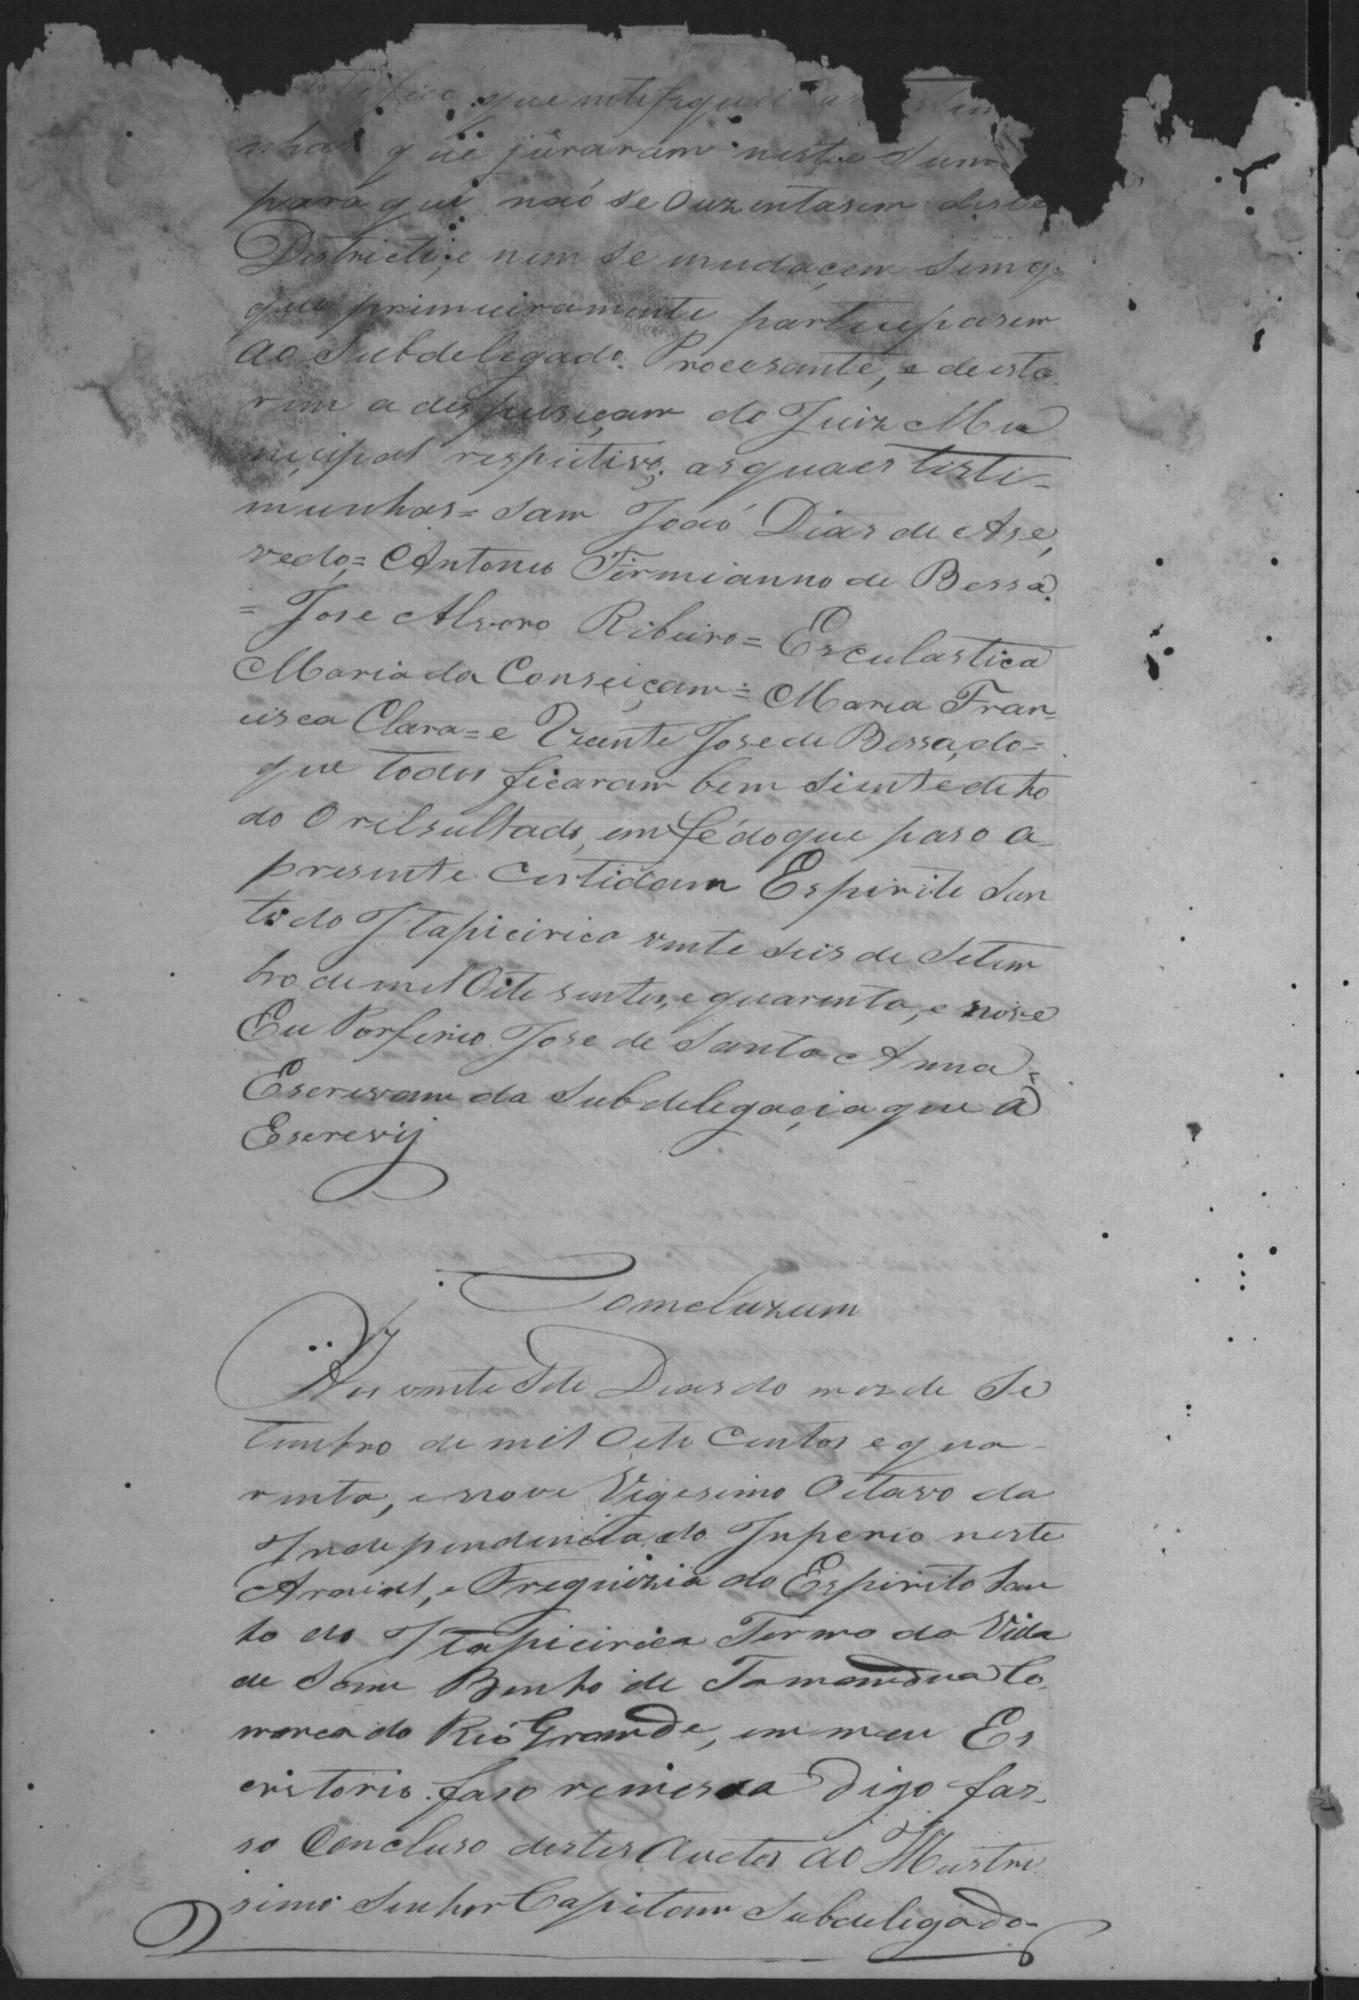 que notifiquei as
nhas que juraram neste Sum
para que naó se Ouzentasem deste
Districto, e nem se mudaçem sem q
que primeiramente partecipasem
ao Subdelegado Procesante, e de esta
rem a despusiçam do Juiz Mu
nicipal respectivo, as quaes testi-
munhas = Sam Joaó Dias de Ase,
vedo, = Antonio Firmianno de Bessa
= Jose Alvaro Ribeiro = Esculastica
Maria da Conseiçam = Maria Fran
cisca Clara = e Vicente Jose de Bessa, do =
que todos ficaram bem siente de to
do O relsultado, em fé do que paso a
presente Certidam Espirito San
to do Itapicirica vinte seis de Setem
bro de mil Oito sentos, e quarenta, e nove
Eu Porferio Jose de Santa Anna =
Escrivam da Subdelegaçia que a
Escrevij
Comcluzum
Aos vinte Sete Dias do mez de Se
tembro de mil Oito Centos e qua-
renta, e nove Vigesimo Oitavo da
Independencia do Inperio neste
Arraial, e Freguizia do Espirito San
to do Itapicirica Termo da Villa
de Sam Bento de Tamandua Co
marca do Rio Grande, em meu Es
critorio faso remessa Digo fas-
so Concluso destes Auctos ao Illustri
simo Senhor Capitam Subdelegado-